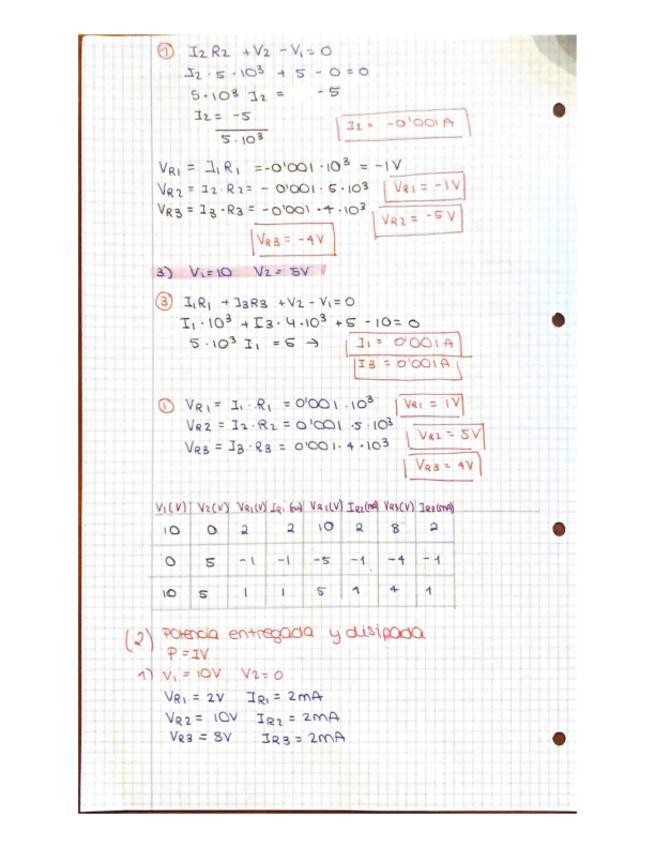 ① I2 R2 + V2 - V1 = 0
I2 · 5 · 10³ + 5 - 0 = 0
5 · 10³ I2 = -5
I2 = -5
5 · 10³
I2 = -0'001 A
VR1 = I1R1 = -0'001 · 10³ = -1V
VR2 = I2 · R2 = -0'001 · 5 · 10³ VR1 = -1V
VR3 = I3 · R3 = -0'001 · 4 · 10³ VR2 = -5V
VR3 = -4V
3) V1=10 V2 = 5V
③ I1R1 + I3R3 + V2 - V1 = 0
I1 · 10³ + I3 · 4 · 10³ + 5 - 10 = 0
5 · 10³ I1 = 5 → I1 = 0'001 A
I3 = 0'001 A
① VR1 = I1 · R1 = 0'001 · 10³ VR1 = 1V
VR2 = I2 · R2 = 0'001 · 5 · 10³ VR2 = 5V
VR3 = I3 · R3 = 0'001 · 4 · 10³
VR3 = 4V
V1(V) V2(V) VR1(V) IR1 (mA) VR2(V) IR2(mA) VR3(V) IR3(mA)
10 0 2 2 10 2 8 2
0 5 -1 -1 -5 -1 -4 -1
10 5 1 1 5 1 4 1
(2) Potencia entregada y disipada
P = IV
1) V1 = 10V V2 = 0
VR1 = 2V IR1 = 2mA
VR2 = 10V IR2 = 2mA
VR3 = 8V IR3 = 2mA